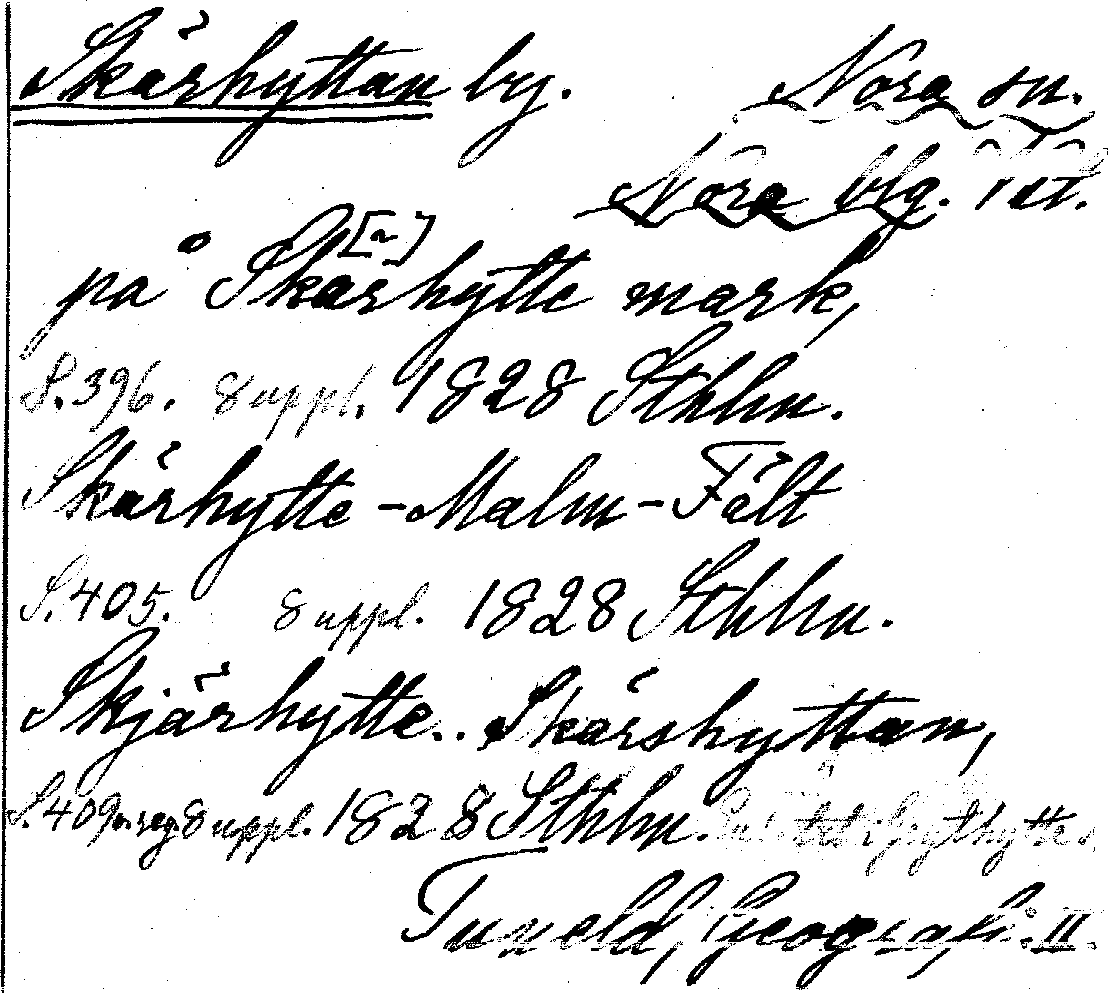 Skärhyttan by. Nora sn.
Nora blg.
på Skärhytte mark, [~]
S. 396. 8 uppl. 1828 Sthlm.
Skärhytte-Malm-Fält
S. 405. 8 uppl. 1828 Sthlm.
Skjärhytte.. Skärshyttan,
S. 409 o. reg. 8 uppl. 1828 Sthlm.
Tuneld, Geografi. II.